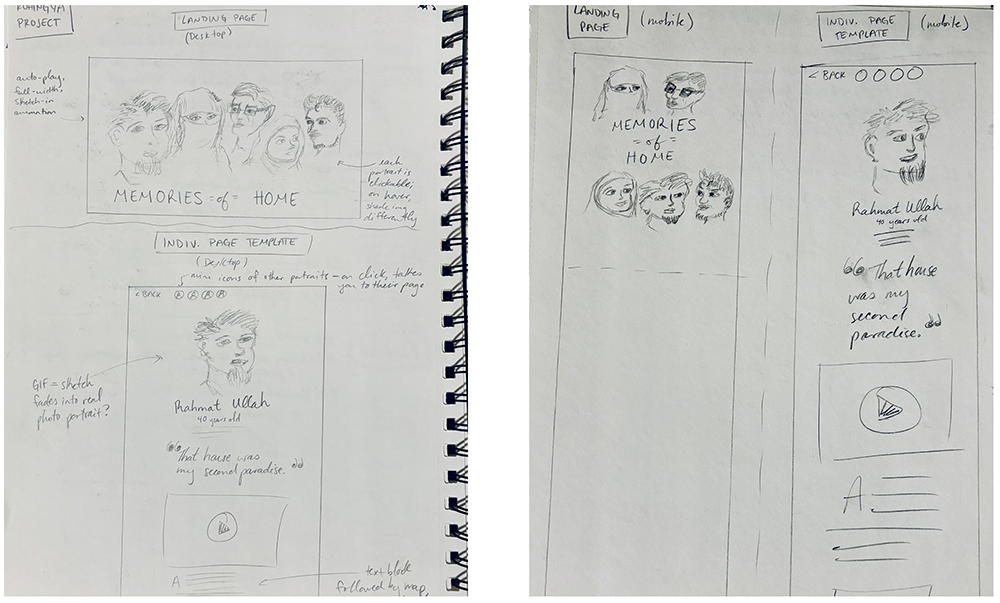 ROHINGYA
PROJECT
LANDING PAGE
(Desktop)
auto-play,
full-width,
sketch-in
animation
each
portrait is
clickable;
on hover,
shading
differently
MEMORIES = of = HOME
INDIV. PAGE TEMPLATE
(Desktop)
mini icons of other portraits - on click, takes
you to their page
< BACK
GIF = sketch
fades into real
photo portrait?
Rahmat Ullah
40 years old
“That house was
my second paradise.”
A
text block
followed by map,
LANDING
PAGE
(mobile)
MEMORIES
= of =
HOME
INDIV. PAGE
TEMPLATE
(mobile)
< BACK
Rahmat Ullah
40 years old
“That house
was my
second
paradise.”
A